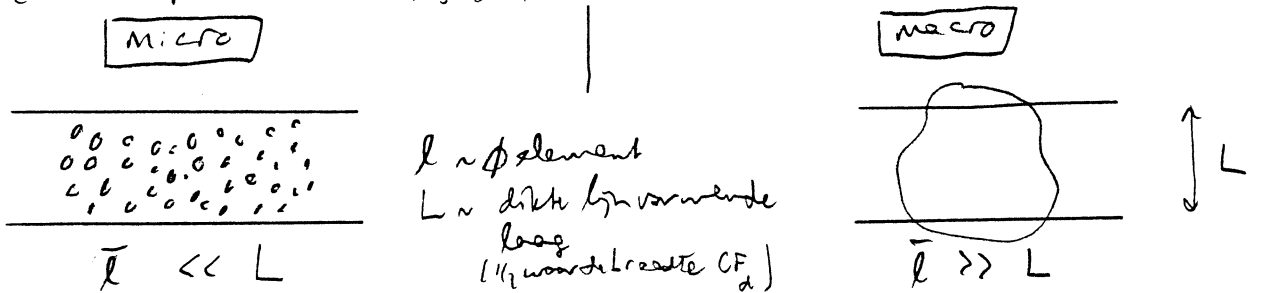 Micro
Macro
l ~ ϕ element
L ~ dikte lijnvormende
laag
(1/2 waardebreedte CF_d)
L
l̄ << L
l̄ >> L